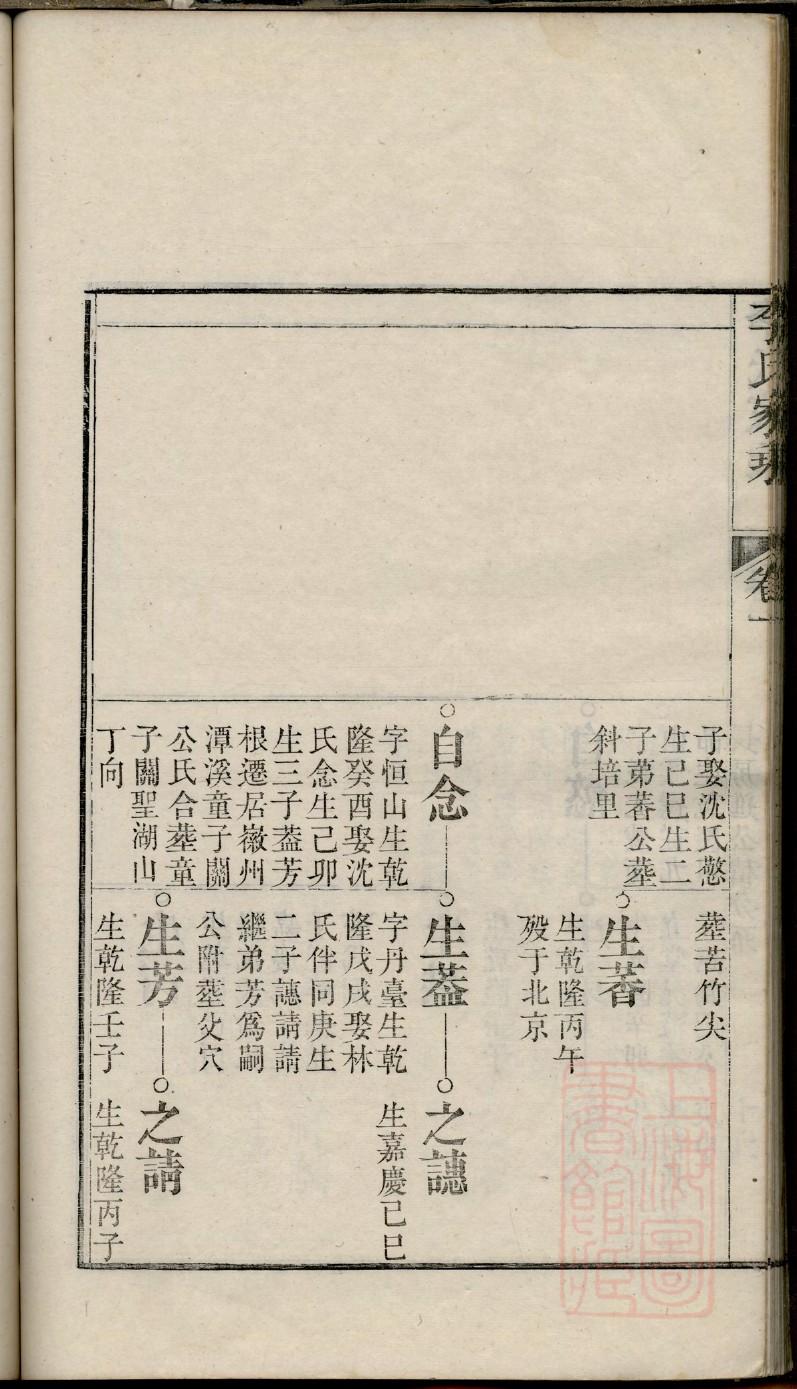 李氏家乘
卷一
子娶沈氏慈
生己巳生二
子苐萶公塟
斜培里
塟苦竹尖
生萶
生乾隆丙午
歿于北京
白念
字恒山生乾
隆癸酉娶沈
氏念生己卯
生三子葢芳
根遷居徽州
潭溪童子關
公氏合塟童
子關聖湖山
丁向
生葢
字丹臺生乾
隆戊戌娶林
氏伴同庚生
二子譓請請
繼弟芳爲嗣
公附塟父穴
之譓
生嘉慶己巳
生芳
生乾隆壬子
之請
生乾隆丙子
上海圖
書館藏